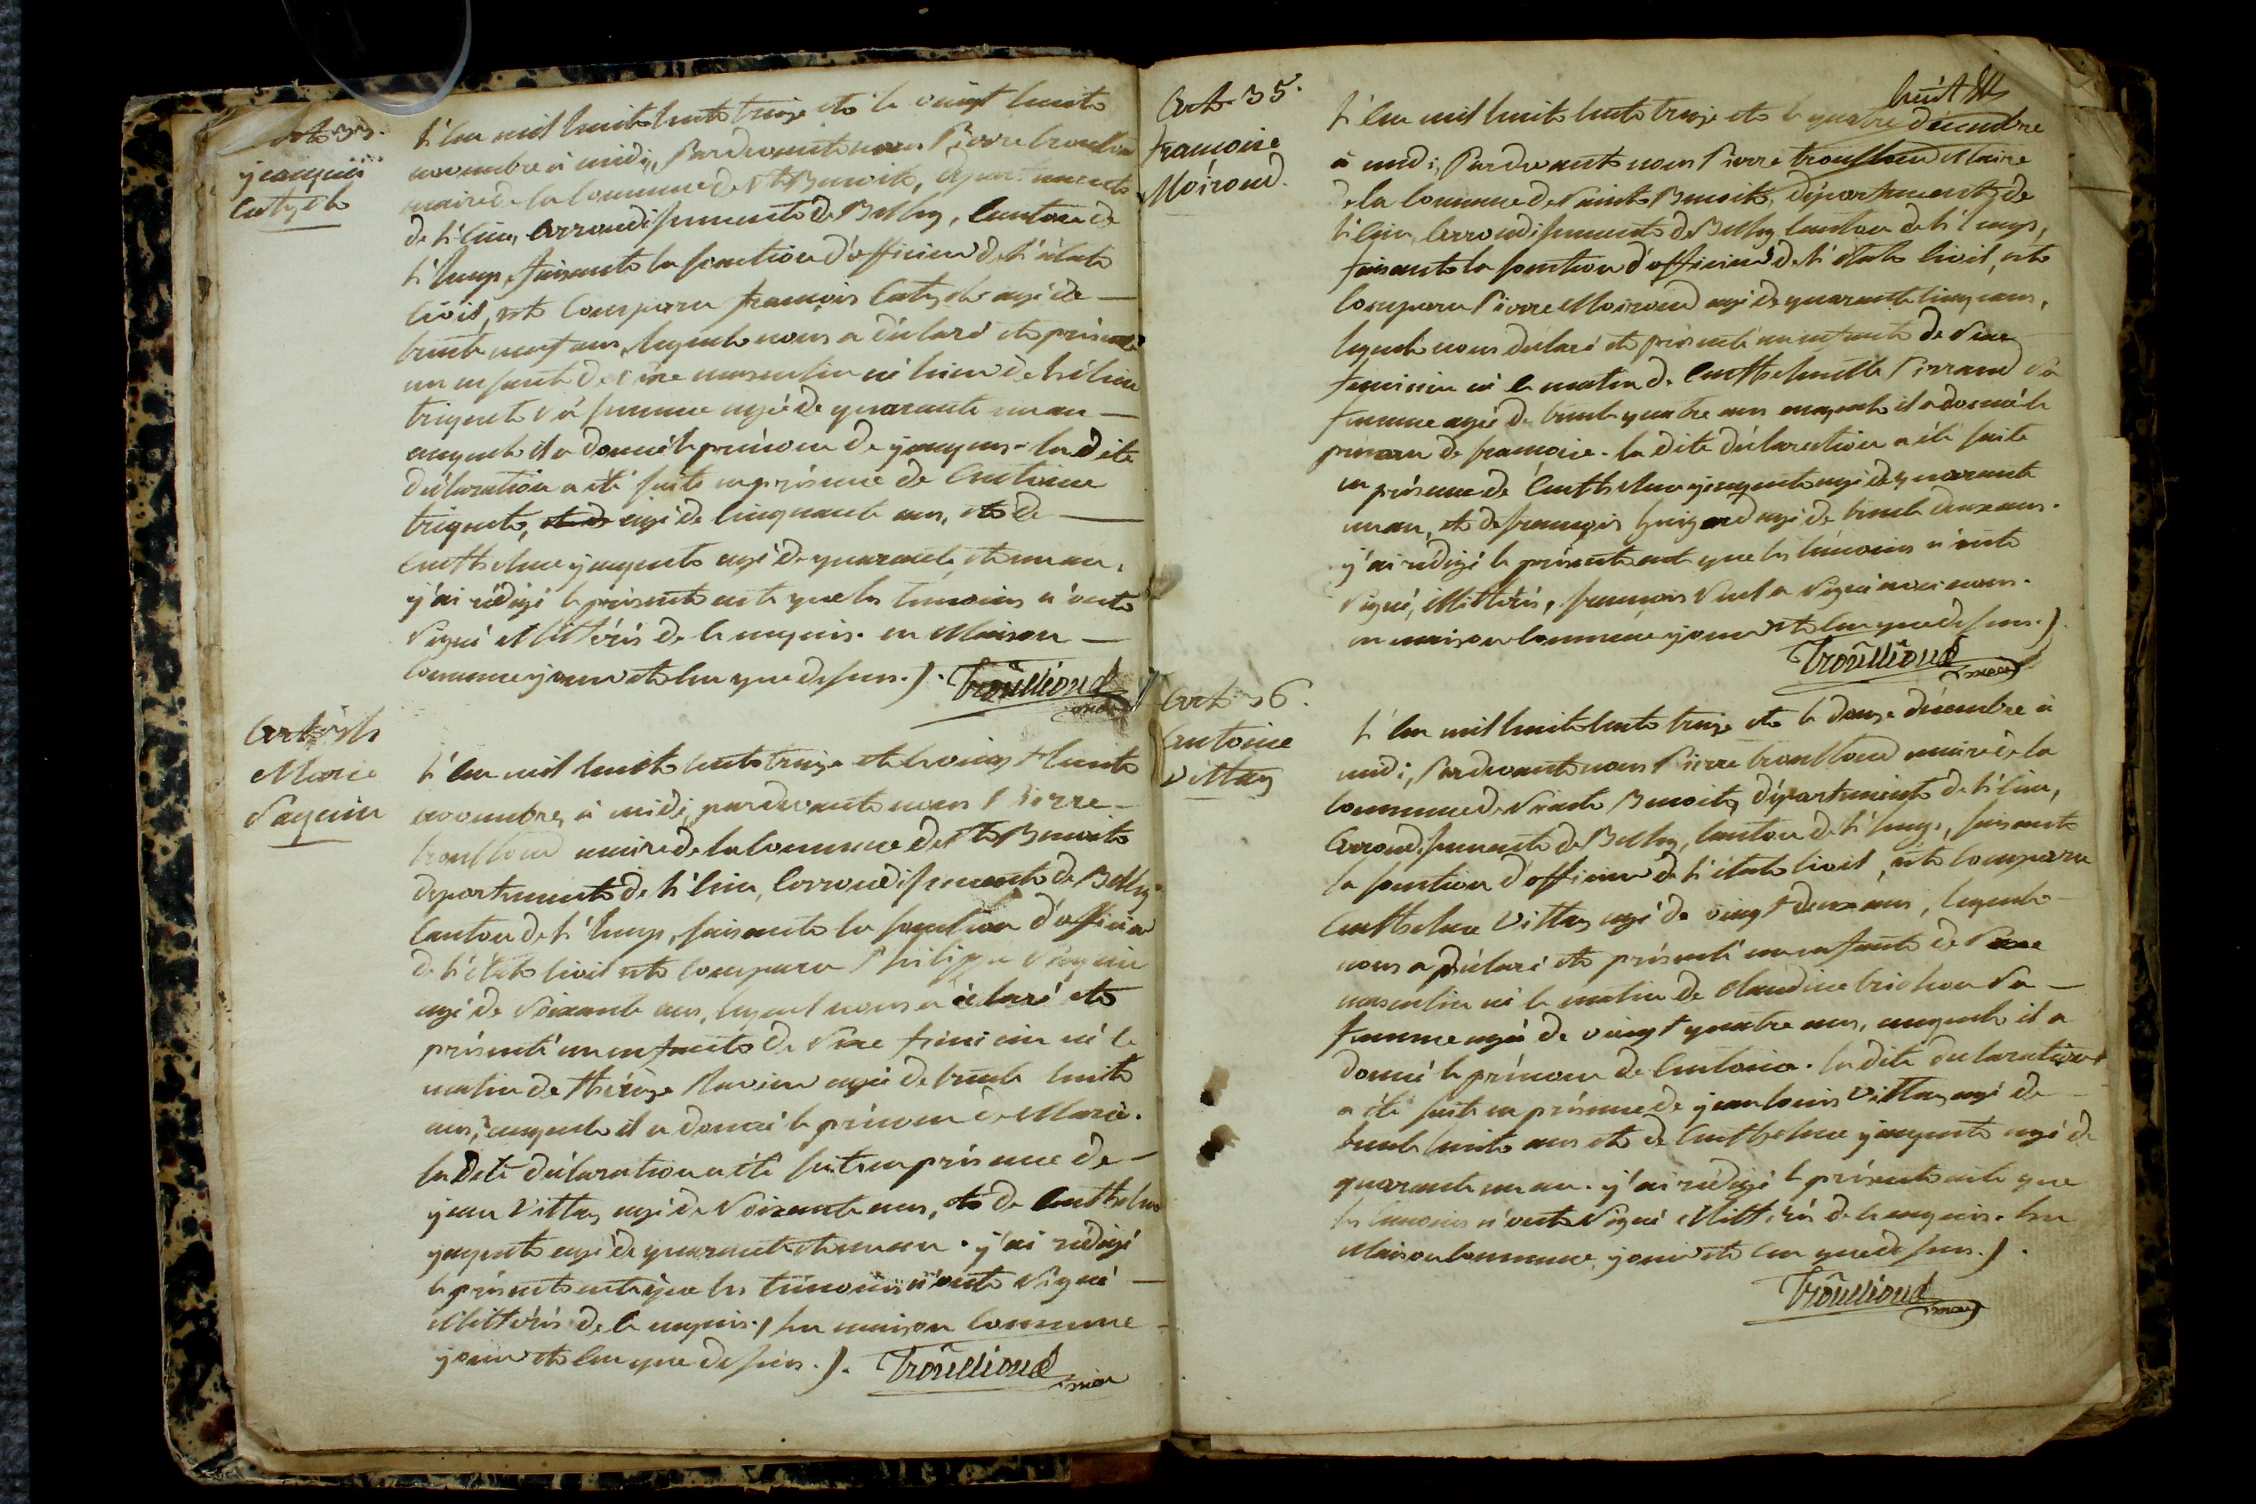 art 33.
jacques
Catysh
L'an mil huit cents treize et le vingt huite
novembre à midi, Pardevant nous Pierre trouilloud
maire de la Commune de St Benoit, département
de L'ain, arrondissement de Belley, Canton de
L'huys, faisant la fonction d'officier de L'état
Civil, est Comparu françois agé de
trente neuf ans, lequel nous a déclaré et présenté
un enfant de sexe masculin né hier de hélène
triquet sa femme agée de quarante un an
auquel il a donné le prénom de jacques. la dite
déclaration a été faite en présence de Antoine
triquet, agé de Cinquante ans, et de
Anthelme jaquet agé de quarante et un an,
j'ai rédigé le présent acte que les témoins n'ont
Signé Illitérés de ce enquis. en Maison
Commune jour et an que dessus.).
Trouilloud
maire
art 34
Marie
Vaquin
L'an mil huit cents treize et le vingt huite
novembre, à midi, pardevant nous Pierre
trouilloud maire de la Commune de St Benoit
département de L'ain, arrondissement de Belley
Canton de L'huys, faisant la fonction d'officier
de L'état Civil est Comparu Philippe Vaquin
agé de Soixante ans, lequel nous a déclaré et
présenté un enfant de Sexe féminin né le
matin de thérèse agée de trente huit
ans, auquel il a donné le prénom de Marie.
la dite déclaration a été faite en présence de
jean Vittoz agé de Soixante ans, et de Anthelme
jaquet agé de quarante et un an. j'ai rédigé
le présent acte que les témoins n'ont Signé
illitérés de ce enquis. en maison Commune
jour et an que dessus.).
Trouilloud
maire
huit
Art 35.
francoise
Moiroud.
L'an mil huit cents treize et le quatre décembre
à midi, Pardevant nous Pierre trouilloud Maire
de la Commune de Saint Benoit, département de
L'ain, arrondissement de Belley Canton de L'huys,
faisant la fonction d'officier de L'état Civil, est
Comparu Pierre Moiroud agé de quarante Cinq ans,
lequel nous déclaré et présenté un enfant de Sexe
féminin né le matin de Anthelmette Pirraud Sa
femme agée de trente quatre ans auquel il a donné le
prénom de francoise. la dite déclaration a été faite
en présence de Anthelme jaquet agé de quarante
un an, et de françois agé de trente deux ans.
j'ai rédigé le présent acte que les témoins n'ont
Signé, illitérés, françois Seul a Signé avec nous.
en maison Commune jour et an que dessus.).
Trouilloud
maire
Art 36.
Antoine
Vittoz
L'an mil huit cents treize et le douze décembre à
midi, Pardevant nous Pierre trouilloud maire de la
Commune de Saint Benoit, département de L'ain,
Arrondissement de Belley, Canton de L'huys, faisant
la fonction d'officier de L'état Civil, est Comparu
Anthelme Vittoz agé de vingt deux ans, lequel
nous a déclaré et présenté un enfant de Sexe
masculin né le matin de Claudine brichon Sa
femme agée de vingt quatre ans, auquel il a
donné le prénom de Antoine. la dite declaration
a été faite en présence de jean louis Vittoz agé de
trente huit ans et de Anthelme jaquet agé de
quarante un an. j'ai rédigé le présent acte que
les témoins n'ont Signé illitérés de ce enquis. En
Maison Commune, jour et an que dessus.).
Trouilloud
maire